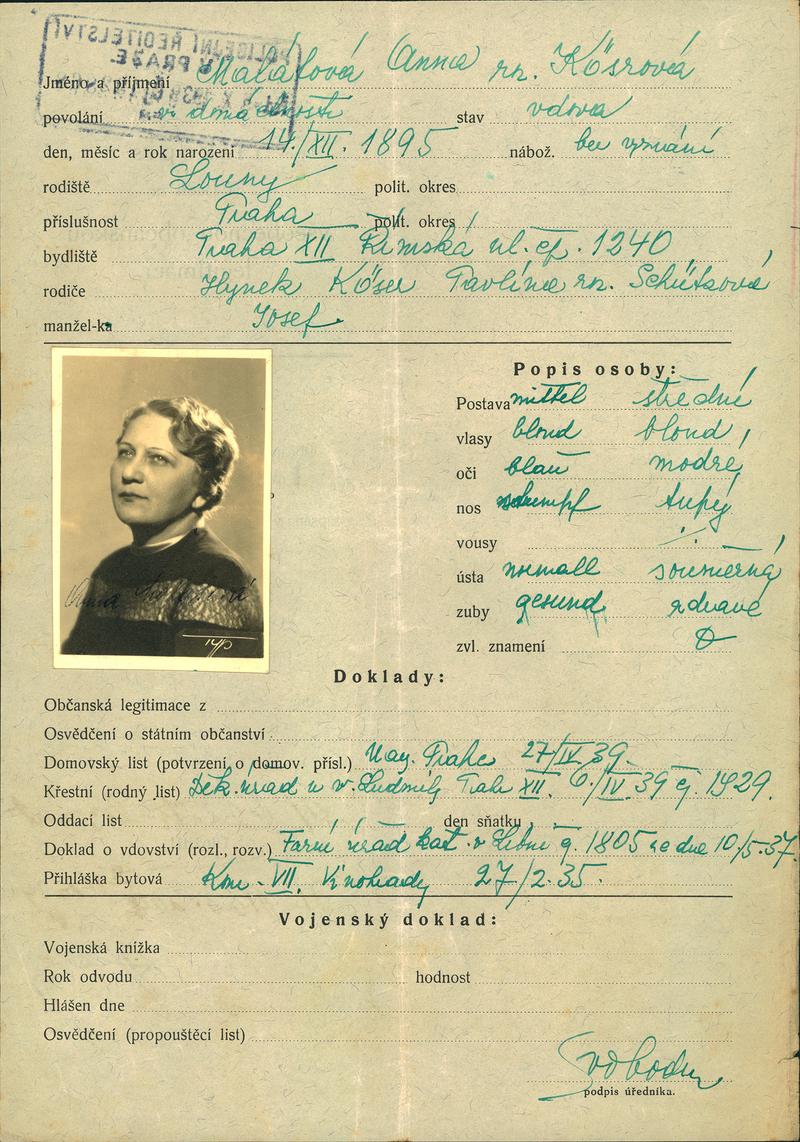 POLICEJNÍ ŘEDITELSTVÍ
V PRAZE
Jméno a příjmení Malátová Anna rz. Kösrová
povolání v domácnosti stav vdova
den, měsíc a rok narození 14./XII. 1895 nábož. bez vyznání
rodiště Louny polit. okres
příslušnost Praha polit. okres
bydliště Praha XII Římská ul. čp. 1240
rodiče Hynek Köser Pavlína rz. Schützová
manžel-ka Josef
Popis osoby:
Postava mittel střední
vlasy blond blond
oči blau modré
nos stumpf tupý
vousy
ústa normall souměrná
zuby gesund zdravé
zvl. znamení
Anna
Doklady:
Občanská legitimace z
Osvědčení o státním občanství
Domovský list (potvrzení o domov. přísl.) Mag. Praha 27/IV. 39.
Křestní (rodný list) Děk. úřad u sv. Ludmily Praha XII. 6/IV. 39 čj. 1929.
Oddací list den sňatku
Doklad o vdovství (rozl., rozv.) Farní úřad kat. v Libni č. 1805 ze dne 10/5.37
Přihláška bytová Kom. VII. Vinohrady 27/2.35.
Vojenský doklad:
Vojenská knížka
Rok odvodu hodnost
Hlášen dne
Osvědčení (propouštěcí list)
Svoboda
podpis úředníka.